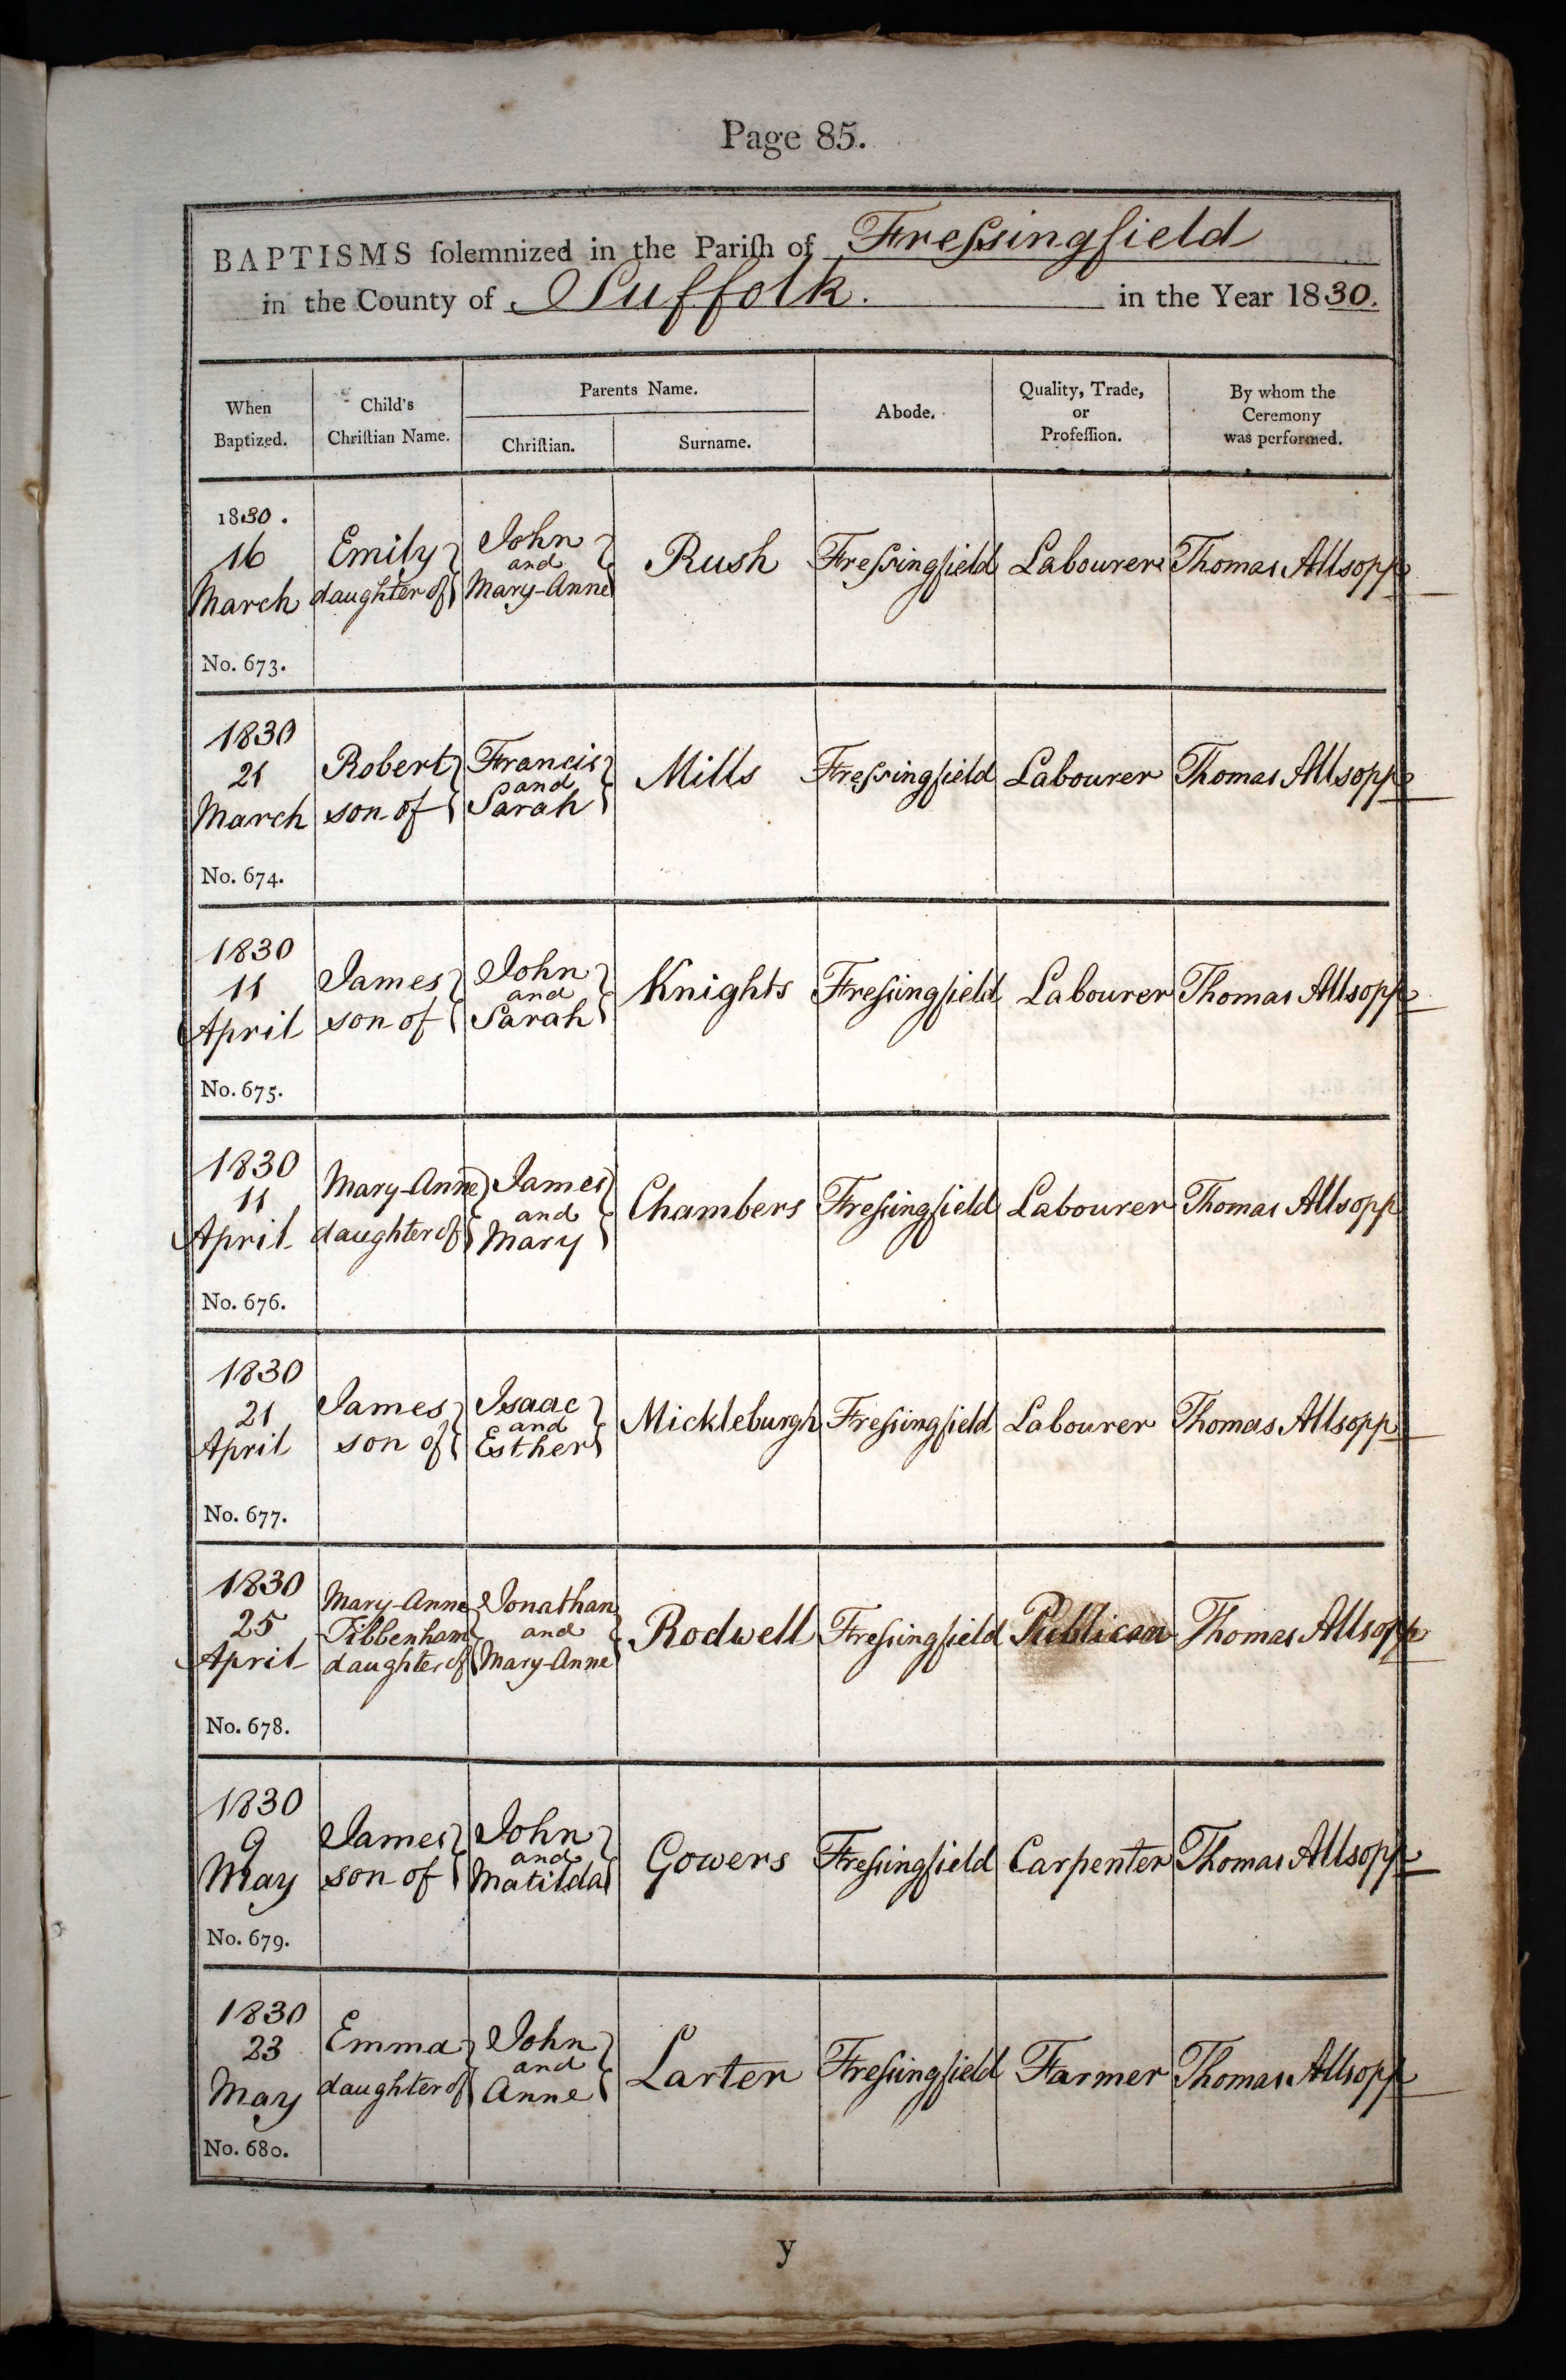 Page 85.
BAPTISMS ſolemnized in the Pariſh of Freſsingfield
in the County of Suffolk. in the Year 1830.
When Baptized.
Child's Chriſtian Name.
Parents Name.
Chriſtian.
Surname.
Abode.
Quality, Trade, or Profeſſion.
By whom the Ceremony was performed.
1830.
16 Emily John Rush Freſsingfield Labourer Thomas Allsopp
and
March daughter of Mary-Anne
No. 673.
1830
21 Robert Francis Mills Freſsingfield Labourer Thomas Allsopp
and
March son of Sarah
No. 674.
1830
11 James John Knights Freſsingfield Labourer Thomas Allsopp
and
April son of Sarah
No. 675.
1830
11 Mary-Anne James Chambers Freſsingfield Labourer Thomas Allsopp
and
April daughter of Mary
No. 676.
1830
21 James Isaac Mickleburgh Freſsingfield Labourer Thomas Allsopp
and
April son of Esther
No. 677.
1830
Mary-Anne Jonathan
25 Tibbenham and Rodwell Freſsingfield Publican Thomas Allsopp
April daughter of Mary-Anne
No. 678.
1830
9 James John Gowers Freſsingfield Carpenter Thomas Allsopp
and
May son of Matilda
No. 679.
1830
23 Emma John Larter Freſsingfield Farmer Thomas Allsopp
and
May daughter of Anne
No. 680.
y